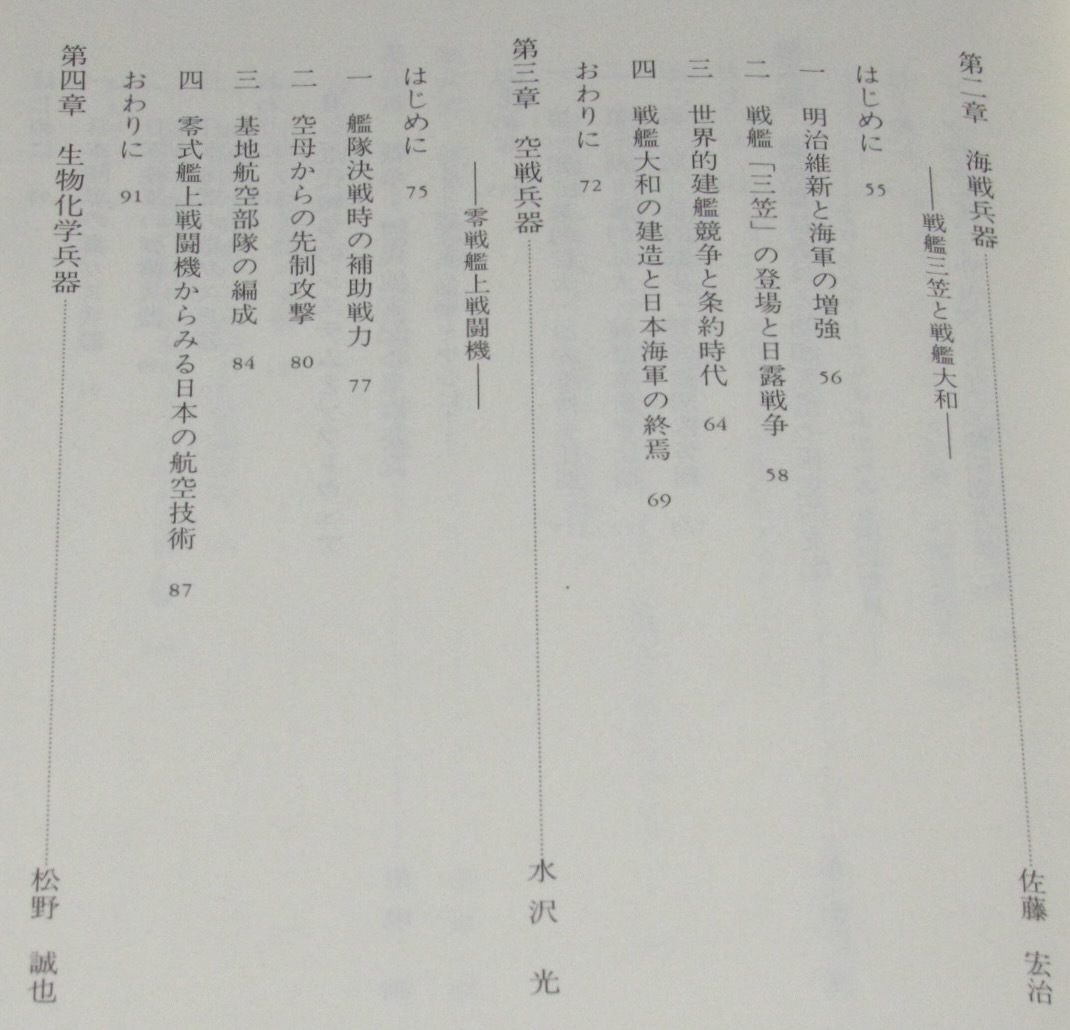 第二章　海戦兵器……………………佐藤　宏治
――戦艦三笠と戦艦大和――
はじめに　55
一　明治維新と海軍の増強　56
二　戦艦「三笠」の登場と日露戦争　58
三　世界的建艦競争と条約時代　64
四　戦艦大和の建造と日本海軍の終焉　69
おわりに　72
第三章　空戦兵器……………………水沢　光
――零戦艦上戦闘機――
はじめに　75
一　艦隊決戦時の補助戦力　77
二　空母からの先制攻撃　80
三　基地航空部隊の編成　84
四　零式艦上戦闘機からみる日本の航空技術　87
おわりに　91
第四章　生物化学兵器……………………松野　誠也